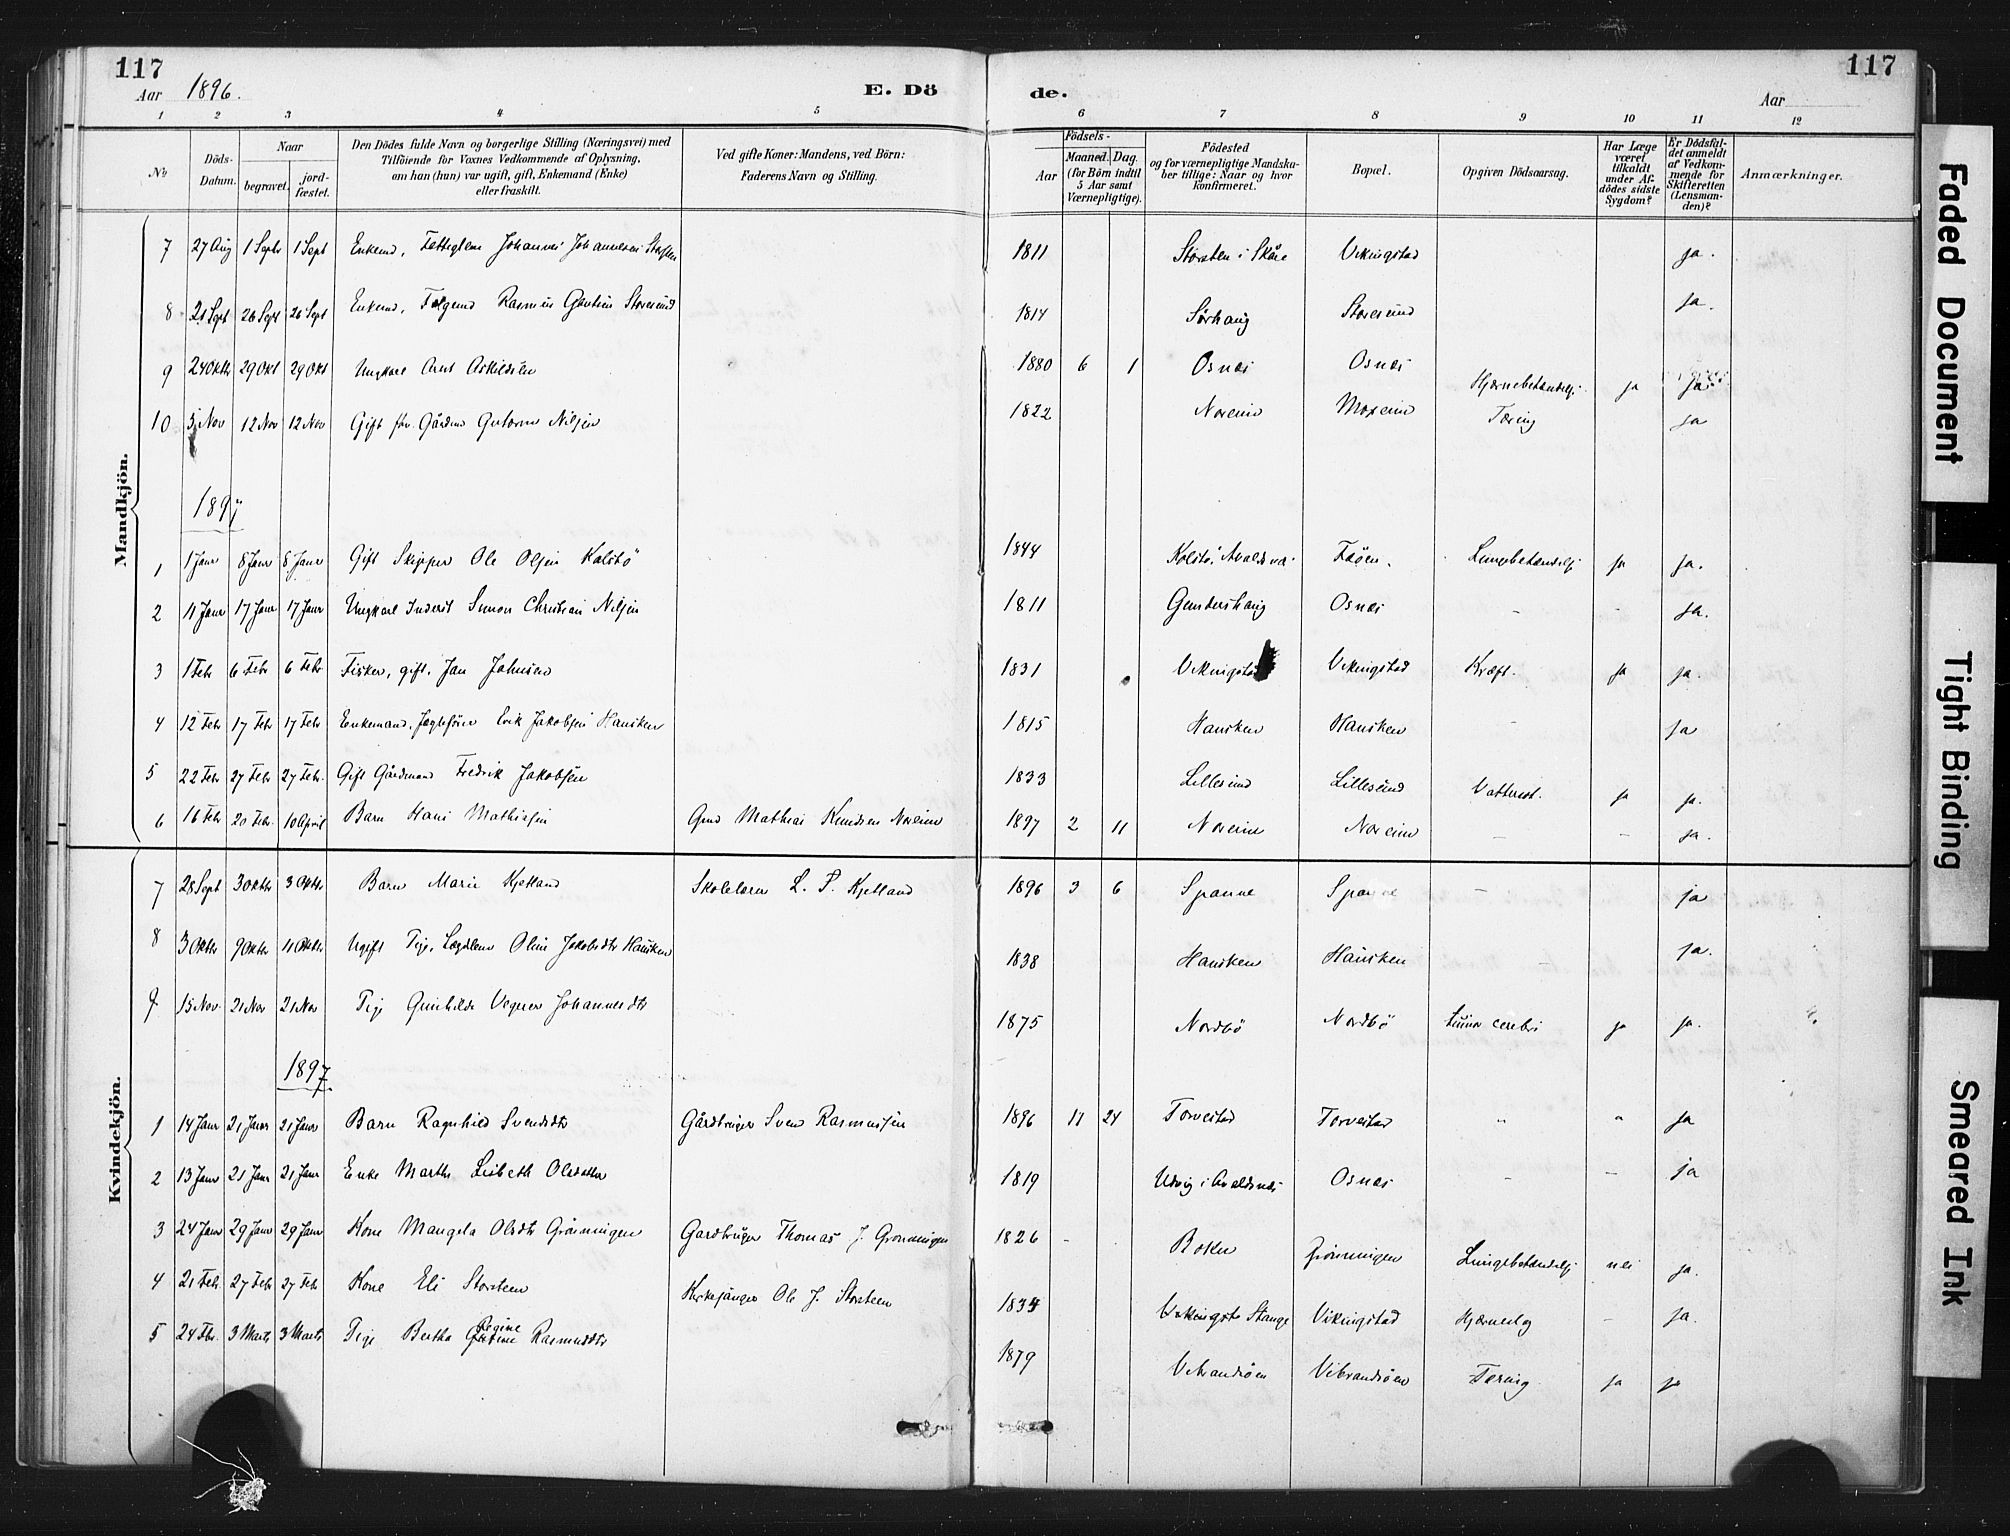 117
Aar 1896.
E. Dö
de.
117
Aar
1 2 3 4 5 6 7 8 9 10 11 12
No
Döds-Datum.
Naar
begravet.
jord-fæstet.
Den Dödes fulde Navn og borgerlige Stilling (Næringsvei) med
Tilföiende for Voxnes Vedkommende af Oplysning,
om han (hun) var ugift, gift, Enkemand (Enke)
eller fraskilt.
Ved gifte Koner: Mandens, ved Börn:
Faderens Navn og Stilling.
Födsels-
Aar
Maaned. Dag.
(for Börn indtil
5 Aar samt
Værnepligtige).
Födested
og for værnepligtige Mandska-
ber tillige: Naar og hvor
konfirmeret.
Bopæl.
Opgiven Dödsaarsag.
Har Læge
været
tilkaldt
under Af-
dödes sidste
Sygdom?
Er Dödsfal-
det anmeldt
af Vedkom-
mende for
Skifteretten
(Lensman-
den)?
Anmærkninger.
Mandkjön.
7 27 Aug 1 Septr 1 Sept Enkemd, Johannes Johannesen 1811 Storsten i Skåre Vikingstad ja.
8 21 Sept 26 Sept 26 Sept Enkemd, Rasmus Storesund 1814 Sörhaug Storesund ja.
9 24 Oktr 29 Okt 29 Okt Ungkarl Arnt Askildsen 1880 6 1 Osnes Osnes Hjernebetændelse ja ja.
10 5 Nov 12 Nov 12 Nov Gift Gårdmd Gutorm Nilsen 1822 Noreim Noreim Tæring ja
1897
1 1 Janr 8 Janr 8 Janr Gift Skipper Ole Olsen Kolstö 1844 Kolstö, Avaldsnes Feöen. Lungebetændelse ja ja.
2 11 Janr 17 Janr 17 Janr Ungkarl Inderst Simon Christian Nilsen 1811 Gundershaug Osnes - - ja.
3 1 Febr 6 Febr 6 Febr Fisker, gift, Jan Johnsen 1831 Vikingstad Vikingstad Kræft. ja ja.
4 12 Febr 17 Febr 17 Febr Enkemand, Erik Jakobsen Hausken 1815 Hausken Hausken - ja
5 22 Febr 27 Febr 27 Febr. Gift Gårdmand Fredrik Jakobsen 1833 Lillesund Lillesund Vattersot. ja ja.
6 16 Febr 20 Febr. 10 April Barn Hans Mathissen Gmd Mathias Knudsen Noreim 1897 2 11 Noreim Noreim - - ja.
Kvindekjön.
7 28 Sept 3 Oktbr 3 Oktbr Barn Marie Kjetland Skolelærer L. P. Kjetland 1896 3 6 Spanne Spanne - ja
8 3 Oktbr 9 Oktbr 11 Oktbr Ugift Pige, Lægdlem Oline Jakobsdtr Hausken 1838 Hausken Hausken - ja.
9 15 Nov. 21 Nov 21 Nov Pige Gunhilde Johannesdtr 1875 Nordbö Nordbö tumor cerebri ja ja.
1897
1 14 Janr 21 Janr 21 Janr Barn Ragnhild Svendsdtr Gårdbruger Sven Rasmussen 1896 11 24 Torvestad Torvestad " " ja
2 13 Janr 21 Janr 21 Janr Enke Marthe Lisbeth Olsdatter 1819 Utvig i Avaldsnes Osnes - - ja
3 24 Janr 29 Janr 29 Janr Kone Mangela Olsdtr Grönningen Gardbruger Thomas J. Grønningen 1826 - Boken Grönningen Lungebetændelse nei ja.
4 21 Febr. 27 Febr 27 Febr Kone Eli Storsteen Kirkesanger Ole J. Storsteen 1834 Stange Vikingstad Hjerneslag - ja.
5 24 Fbr. 3 Marts 3 Marts Pige Bertha Regine Rasmusdtr 1879 Vibrandsöen Vibrandsöen Tæring ja ja
Faded Document
Tight Binding
Smeared Ink